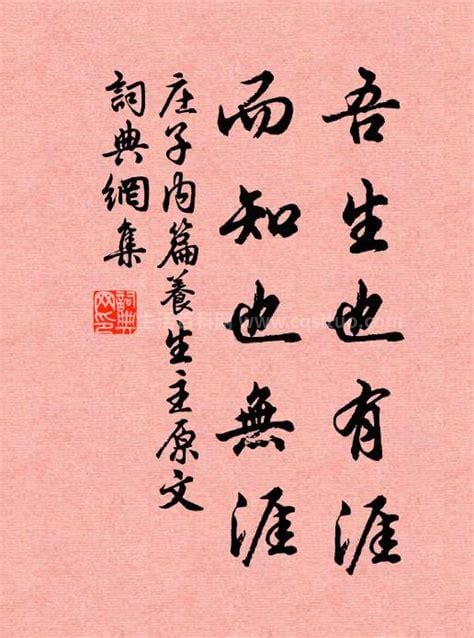 吾生也有涯
而知也無涯
庄子內篇養生主原文
詞典網集
詞典
网印